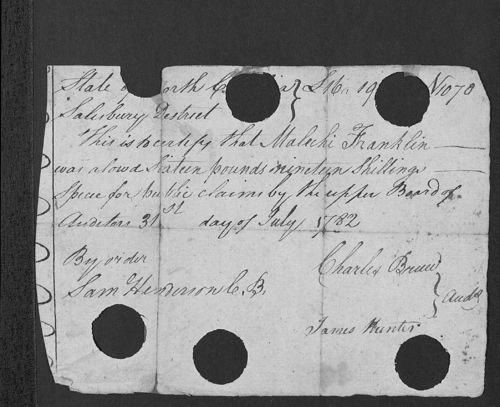 State o orth C a } L16 " 19 N 1078
Salesbury District
This is to certify that Malechi Franklin
was alowd Sixteen pounds nineteen Shillings
Specie for public claims by the upper Board of
Auditors 31st day of July 1782
By order
Sam Henderson C. B.
Charles Bruce
} Audrs
James Hunter